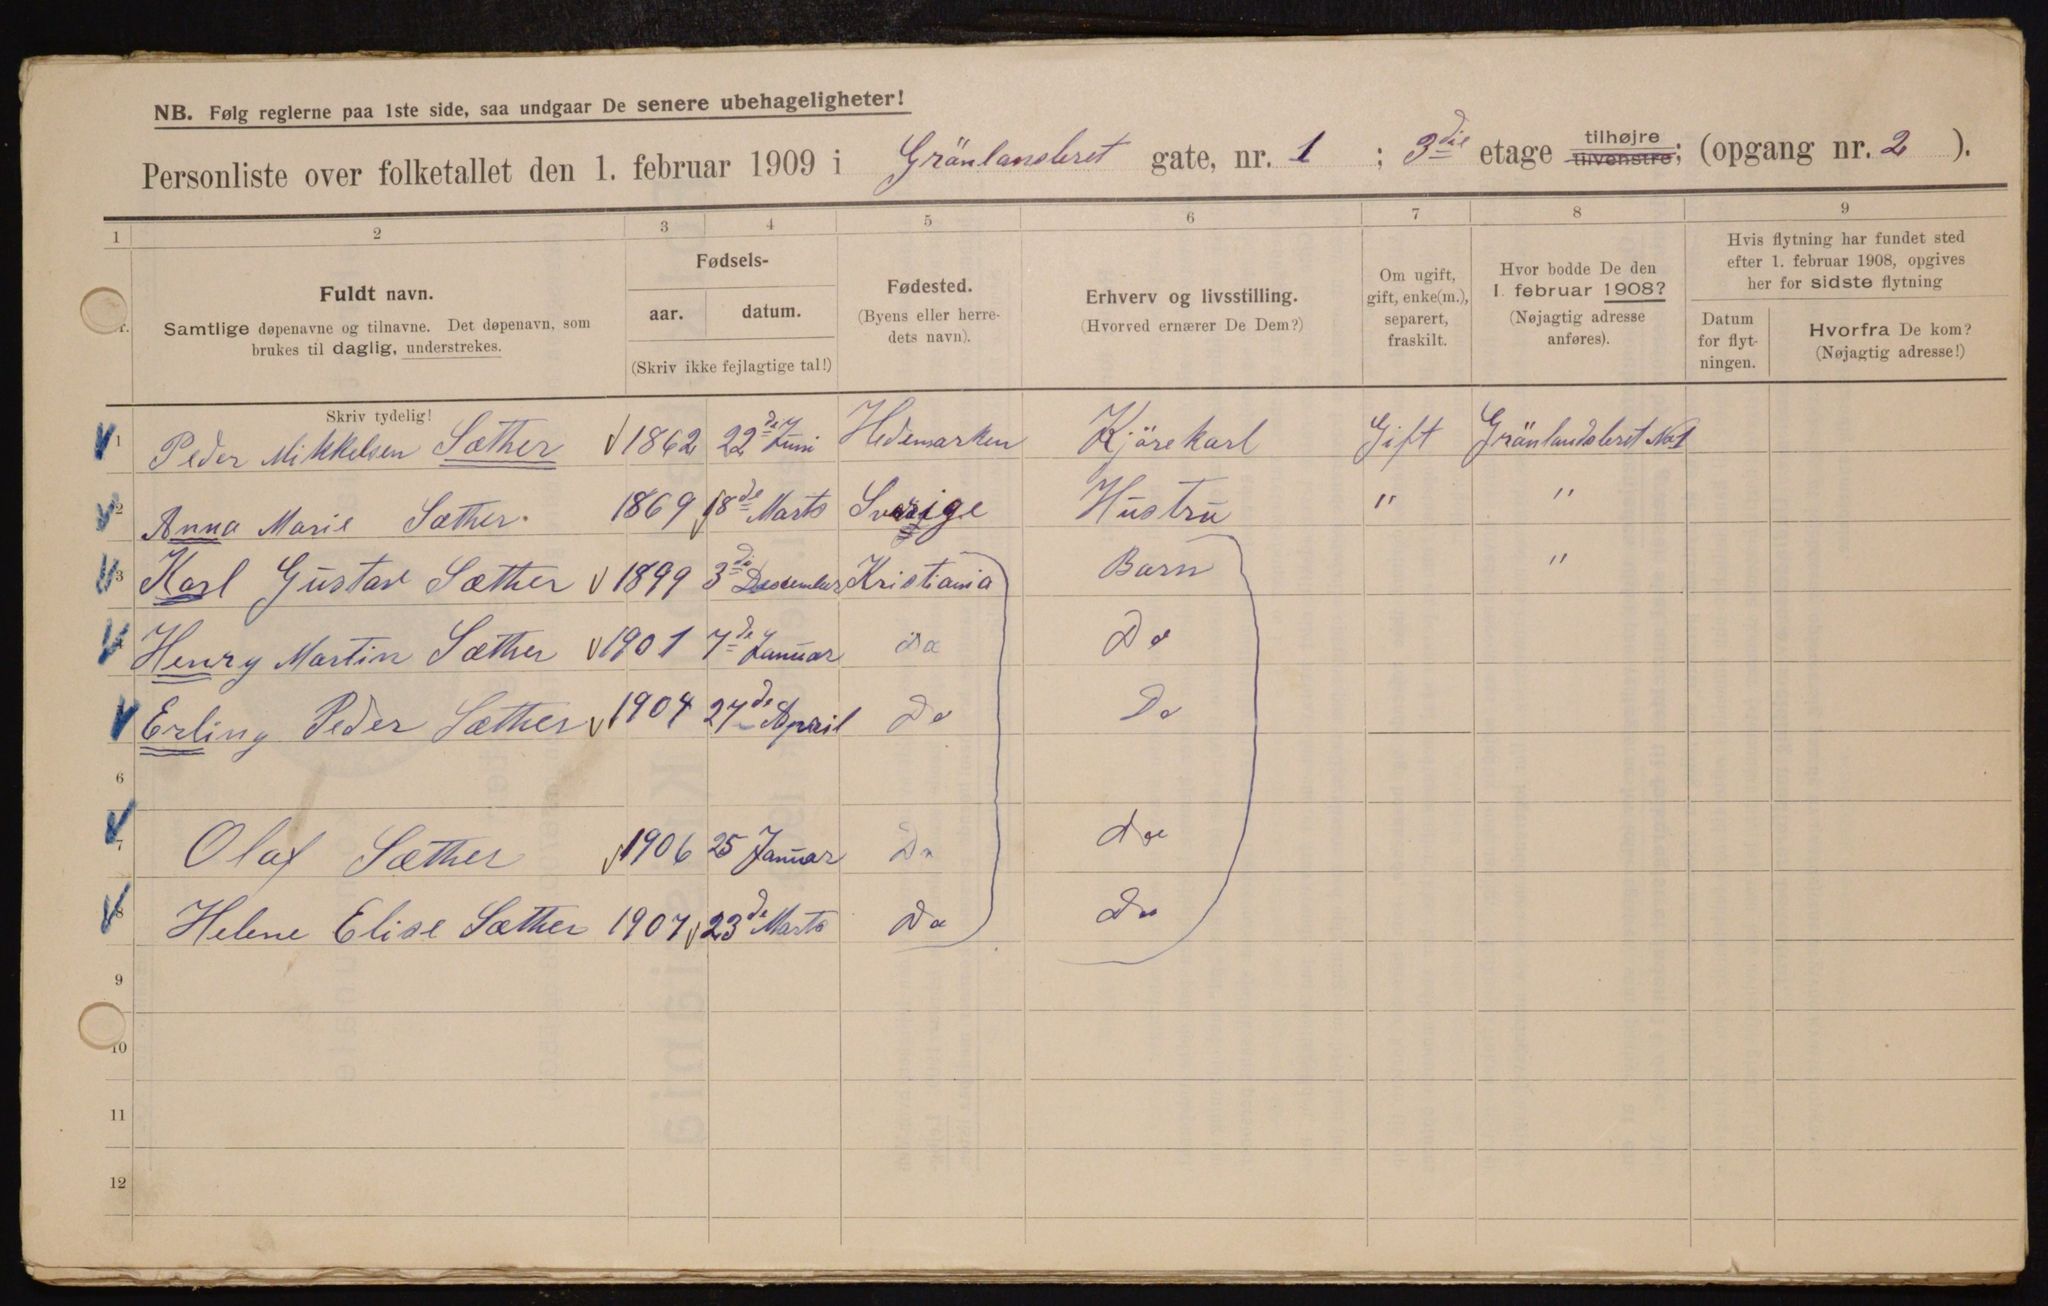 NB. Følg reglerne paa 1ste side, saa undgaar De senere ubehageligheter!
Personliste over folketallet den 1. februar 1909 i Grönlansleret gate, nr. 1 ; 3die etage tilhøjre tilvenstre; (opgang nr. 2 ).
1 2 3 4 5 6 7 8 9
Fuldt navn.
Samtlige døpenavne og tilnavne. Det døpenavn, som
brukes til daglig, understrekes.
Skriv tydelig!
Fødsels-
aar. datum.
(Skriv ikke fejlagtige tal!)
Fødested.
(Byens eller herre-
dets navn).
Erhverv og livsstilling.
(Hvorved ernærer De Dem?)
Om ugift,
gift, enke(m.),
separert,
fraskilt.
Hvor bodde De den
1. februar 1908?
(Nøjagtig adresse
anføres).
Hvis flytning har fundet sted
efter 1. februar 1908, opgives
her for sidste flytning
Datum
for flyt-
ningen.
Hvorfra De kom?
(Nøjagtig adresse!)
1 Peder Mikkelsen Sæther 1862 22de Juni Hedemarken Kjörekarl Gift Grönlandsleret No 1
2 Anna Marie Sæther. 1869 18de Marts Sverige Hustru " "
3 Karl Gustav Sæther 1899 3die Desember Kristiania Barn "
4 Henry Martin Sæther 1901 7de Januar Do Do
Erling Peder Sæther 1904 27de April Do Do
6
7 Olaf Sæther 1906 25 Januar Do do
8 Helene Elise Sæther 1907 23de Marts Do Do
9
10
11
12